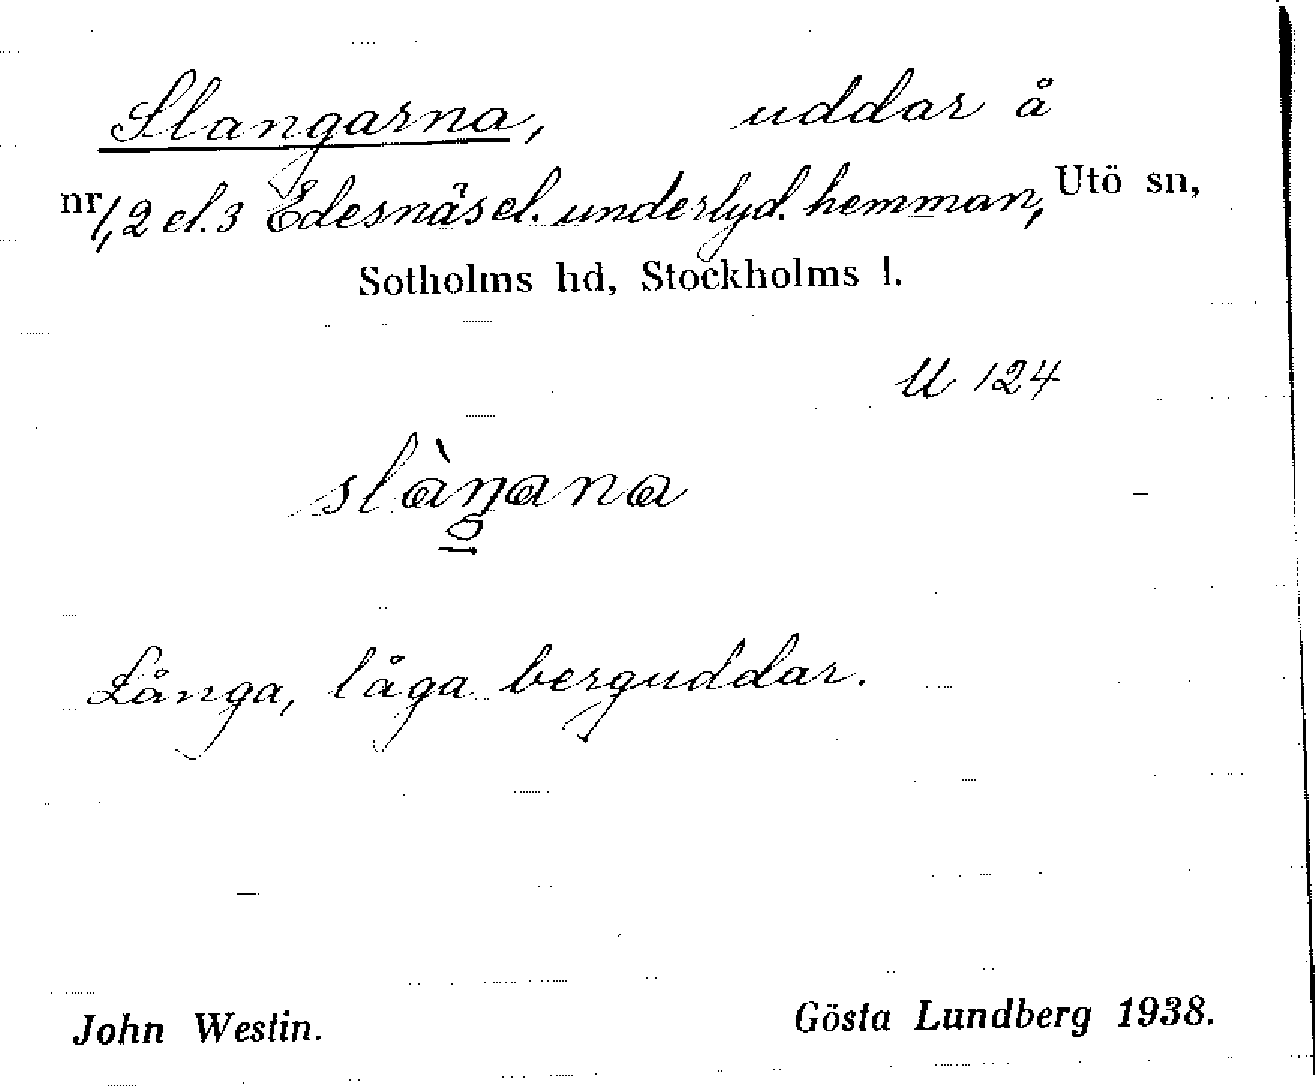 Slangarna, uddar å
nr 1, 2 el. 3 Edesnäs el. underlyd. hemman, Utö sn,
Sotholms hd, Stockholms l.
U 124
slàŋana
Långa, låga berguddar.
John Westin. Gösta Lundberg 1938.